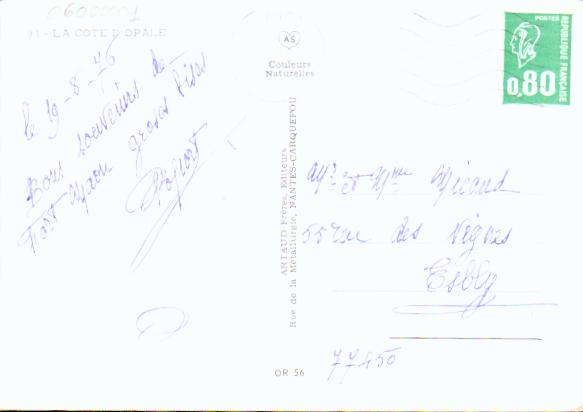 0600001
91 - LA COTE D'OPALE
le 19-8-76
Bons souvenirs de
Fort Maon grosses bises
AS
Couleurs
Naturelles
ARTAUD Frères, Editeurs
Rue de la Métallurgie, NANTES-CARQUEFOU
OR 56
POSTES
REPUBLIQUE FRANÇAISE
0,80
Mr et Mme Micaud
55 rue des Vignes
Esbly
77450